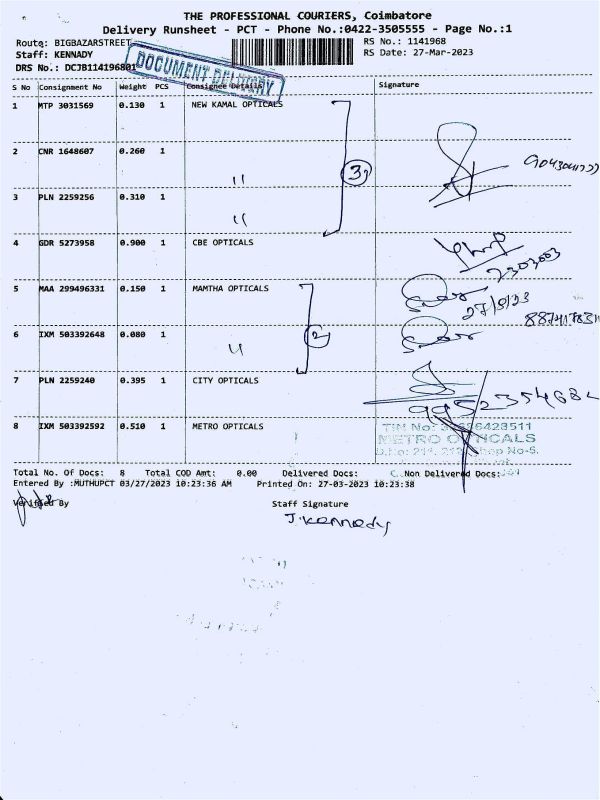 THE PROFESSIONAL COURIERS, Coimbatore
Delivery Runsheet - PCT - Phone No.:0422-3505555 - Page No.:1
Route: BIGBAZARSTREET
RS No.: 1141968
Staff: KENNADY
RS Date: 27-Mar-2023
DRS No.: DCJB114196801
DOCUMENT DELIVERY
S No Consignment No Weight PCS Consignee Details Signature
1 MTP 3031569 0.130 1 NEW KAMAL OPTICALS
2 CNR 1648607 0.260 1 "
3
3 PLN 2259256 0.310 1 "
4 GDR 5273958 0.900 1 CBE OPTICALS
2303003
5 MAA 299496331 0.150 1 MAMTHA OPTICALS
27/3/23
6 IXM 503392648 0.080 1 "
2
7 PLN 2259240 0.395 1 CITY OPTICALS
8 IXM 503392592 0.510 1 METRO OPTICALS
TIN No:
METRO OPTICALS
D.No: 211, 212, Shop No-6.
Total No. Of Docs: 8 Total COD Amt: 0.00 Delivered Docs: Non Delivered Docs:
Entered By :MUTHUPCT 03/27/2023 10:23:36 AM Printed On: 27-03-2023 10:23:38
Verified By Staff Signature
J. Kennady